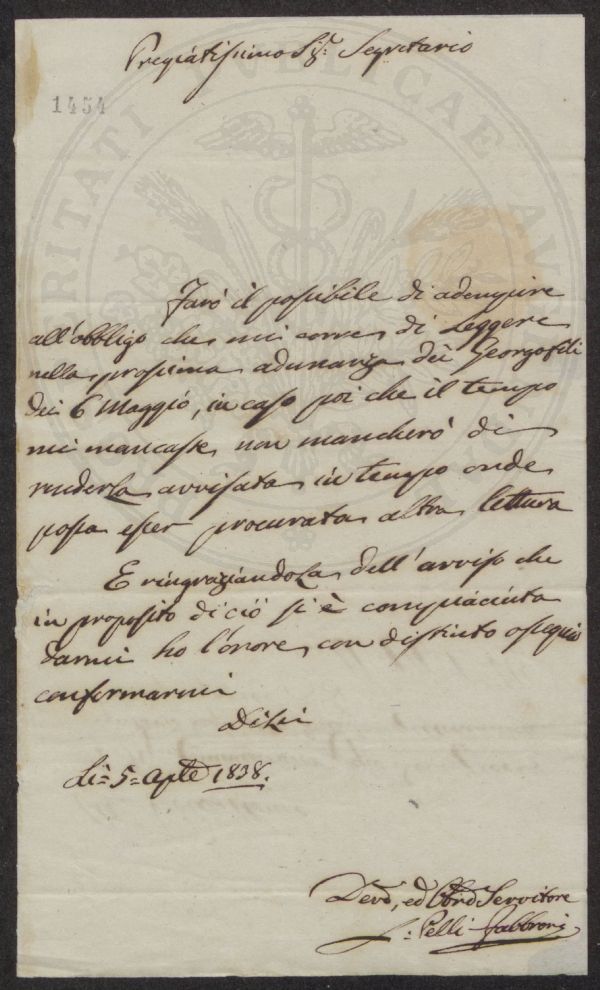 Pregiatissimo Sig.r Segretario
1454
Farò il possibile di adempire
all'obbligo che mi corre di Leggere
nella prossima adunanza dei Georgofili
dei 6 Maggio, in caso poi che il tempo
mi mancasse non mancherò di
renderLa avvisata in tempo onde
possa esser procurata altra lettura
E ringraziandoLa dell'avviso che
in proposito di ciò si è compiaciuta
darmi ho l'onore con distinto ossequio
confermarmi
Di Lei
Li 5 Aple 1838.
Devo, ed Obbmo Servitore
Pelli Fabbroni